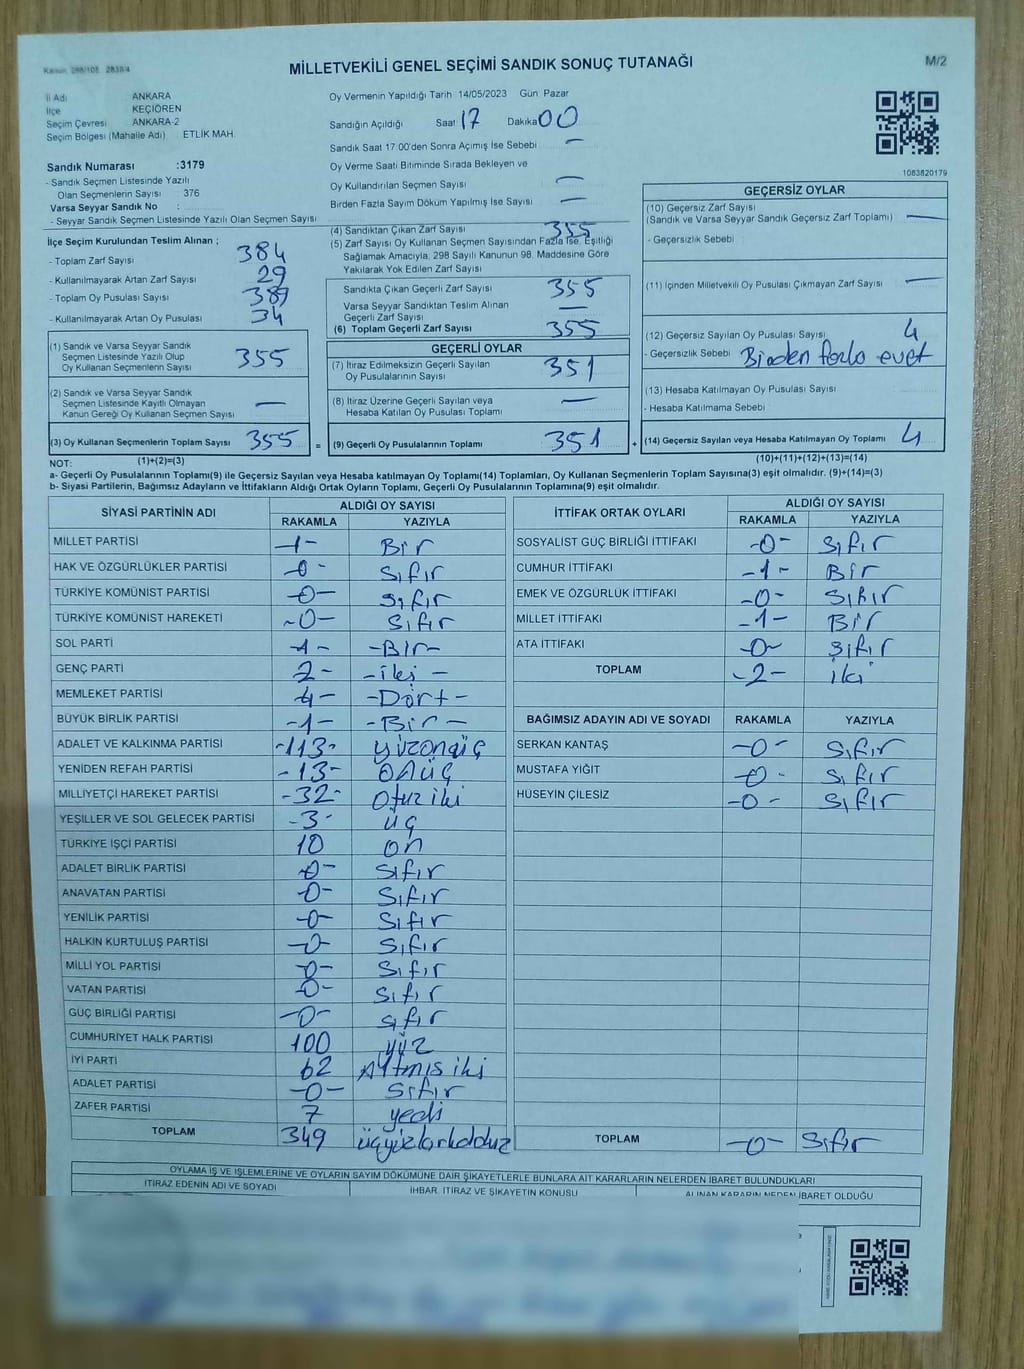 Kanun: 298/105 2839/4
MİLLETVEKİLİ GENEL SEÇİMİ SANDIK SONUÇ TUTANAĞI
M/2
İl Adı ANKARA
İlçe KEÇİÖREN
Seçim Çevresi ANKARA-2
Seçim Bölgesi (Mahalle Adı) ETLİK MAH.
Oy Vermenin Yapıldığı Tarih 14/05/2023 Gün Pazar
Sandığın Açıldığı Saat 17 Dakika 00
Sandık Saat 17 00'den Sonra Açımış İse Sebebi —
Oy Verme Saati Bitiminde Sırada Bekleyen ve
Oy Kullandırılan Seçmen Sayısı —
Birden Fazla Sayım Döküm Yapılmış İse Sayısı —
1083820179
Sandık Numarası :3179
- Sandık Seçmen Listesinde Yazılı
Olan Seçmenlerin Sayısı : 376
Varsa Seyyar Sandık No :
- Seyyar Sandık Seçmen Listesinde Yazılı Olan Seçmen Sayısı
İlçe Seçim Kurulundan Teslim Alınan ;
- Toplam Zarf Sayısı 384
- Kullanılmayarak Artan Zarf Sayısı 29
- Toplam Oy Pusulası Sayısı 389
- Kullanılmayarak Artan Oy Pusulası 34
(1) Sandık ve Varsa Seyyar Sandık
Seçmen Listesinde Yazılı Olup
Oy Kullanan Seçmenlerin Sayısı 355
(2) Sandık ve Varsa Seyyar Sandık
Seçmen Listesinde Kayıtlı Olmayan
Kanun Gereği Oy Kullanan Seçmen Sayısı —
(3) Oy Kullanan Seçmenlerin Toplam Sayısı 355 =
(4) Sandıktan Çıkan Zarf Sayısı 355
(5) Zarf Sayısı Oy Kullanan Seçmen Sayısından Fazla İse, Eşitliği
Sağlamak Amacıyla, 298 Sayılı Kanunun 98. Maddesine Göre
Yakılarak Yok Edilen Zarf Sayısı
Sandıkta Çıkan Geçerli Zarf Sayısı 355
Varsa Seyyar Sandıktan Teslim Alınan
Geçerli Zarf Sayısı —
(6) Toplam Geçerli Zarf Sayısı 355
GEÇERLİ OYLAR
(7) İtiraz Edilmeksizin Geçerli Sayılan
Oy Pusulalarının Sayısı 351
(8) İtiraz Üzerine Geçerli Sayılan veya
Hesaba Katılan Oy Pusulası Toplamı —
(9) Geçerli Oy Pusulalarının Toplamı 351 +
GEÇERSİZ OYLAR
(10) Geçersiz Zarf Sayısı
(Sandık ve Varsa Seyyar Sandık Geçersiz Zarf Toplamı) —
- Geçersizlik Sebebi
(11) İçinden Milletvekili Oy Pusulası Çıkmayan Zarf Sayısı —
(12) Geçersiz Sayılan Oy Pusulası Sayısı 4
- Geçersizlik Sebebi Birden fazla evet
(13) Hesaba Katılmayan Oy Pusulası Sayısı
- Hesaba Katılmama Sebebi
(14) Geçersiz Sayılan veya Hesaba Katılmayan Oy Toplamı 4
NOT: (1)+(2)=(3) (10)+(11)+(12)+(13)=(14)
a- Geçerli Oy Pusulalarının Toplamı(9) ile Geçersiz Sayılan veya Hesaba katılmayan Oy Toplamı(14) Toplamları, Oy Kullanan Seçmenlerin Toplam Sayısına(3) eşit olmalıdır. (9)+(14)=(3)
b- Siyasi Partilerin, Bağımsız Adayların ve İttifakların Aldığı Ortak Oyların Toplamı, Geçerli Oy Pusulalarının Toplamına(9) eşit olmalıdır.
SİYASİ PARTİNİN ADI ALDIĞI OY SAYISI
RAKAMLA YAZIYLA
MİLLET PARTİSİ -1- Bir
HAK VE ÖZGÜRLÜKLER PARTİSİ -0- Sıfır
TÜRKİYE KOMÜNİST PARTİSİ -0- Sıfır
TÜRKİYE KOMÜNİST HAREKETİ -0- Sıfır
SOL PARTİ -1- -Bir-
GENÇ PARTİ 2- -iki-
MEMLEKET PARTİSİ 4- -Dört-
BÜYÜK BİRLİK PARTİSİ -1- -Bir-
ADALET VE KALKINMA PARTİSİ -113- yüzonüç
YENİDEN REFAH PARTİSİ -13- onüç
MİLLİYETÇİ HAREKET PARTİSİ -32- Otuz iki
YEŞİLLER VE SOL GELECEK PARTİSİ -3- üç
TÜRKİYE İŞÇİ PARTİSİ 10 on
ADALET BİRLİK PARTİSİ -0- Sıfır
ANAVATAN PARTİSİ -0- Sıfır
YENİLİK PARTİSİ -0- Sıfır
HALKIN KURTULUŞ PARTİSİ -0- Sıfır
MİLLİ YOL PARTİSİ -0- Sıfır
VATAN PARTİSİ -0- Sıfır
GÜÇ BİRLİĞİ PARTİSİ -0- Sıfır
CUMHURİYET HALK PARTİSİ 100 yüz
İYİ PARTİ 62 Altmış iki
ADALET PARTİSİ -0- Sıfır
ZAFER PARTİSİ 7 yedi
TOPLAM 349 üçyüzkırkdokuz
İTTİFAK ORTAK OYLARI ALDIĞI OY SAYISI
RAKAMLA YAZIYLA
SOSYALİST GÜÇ BİRLİĞİ İTTİFAKI -0- Sıfır
CUMHUR İTTİFAKI -1- Bir
EMEK VE ÖZGÜRLÜK İTTİFAKI -0- Sıfır
MİLLET İTTİFAKI -1- Bir
ATA İTTİFAKI -0- Sıfır
TOPLAM -2- iki
BAĞIMSIZ ADAYIN ADI VE SOYADI RAKAMLA YAZIYLA
SERKAN KANTAŞ -0- Sıfır
MUSTAFA YİĞİT -0- Sıfır
HÜSEYİN ÇİLESİZ -0- Sıfır
TOPLAM -0- Sıfır
OYLAMA İŞ VE İŞLEMLERİNE VE OYLARIN SAYIM DÖKÜMÜNE DAİR ŞİKAYETLERLE BUNLARA AİT KARARLARIN NELERDEN İBARET BULUNDUKLARI
İTİRAZ EDENİN ADI VE SOYADI İHBAR, İTİRAZ VE ŞİKAYETİN KONUSU ALINAN KARARIN NEDEN İBARET OLDUĞU